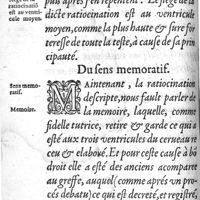 ratiocinatiō
est au ventri-
cule moyen.
puis apres s'en repentent. Le siege de la
dicte ratiocination est au ventricule
moyen, comme la plus haute & sure for
teresse de toute la teste, à cause de sa prin
cipauté.
Du sens memoratif.
Sens memo-
ratif.
Memoire.
Maintenant, la ratiocination
descripte, nous fault parler de
la memoire, laquelle, comme
fidelle tutrice, retire & garde ce qui a
esté aux trois ventricules du cerveau re
ceu & elaboué. Et pour ceste cause à bõ
droit elle a esté des anciens acomparee
au greffe, auquel (comme apres vn pro
cés debatu) ce qui est decreté, et registré,